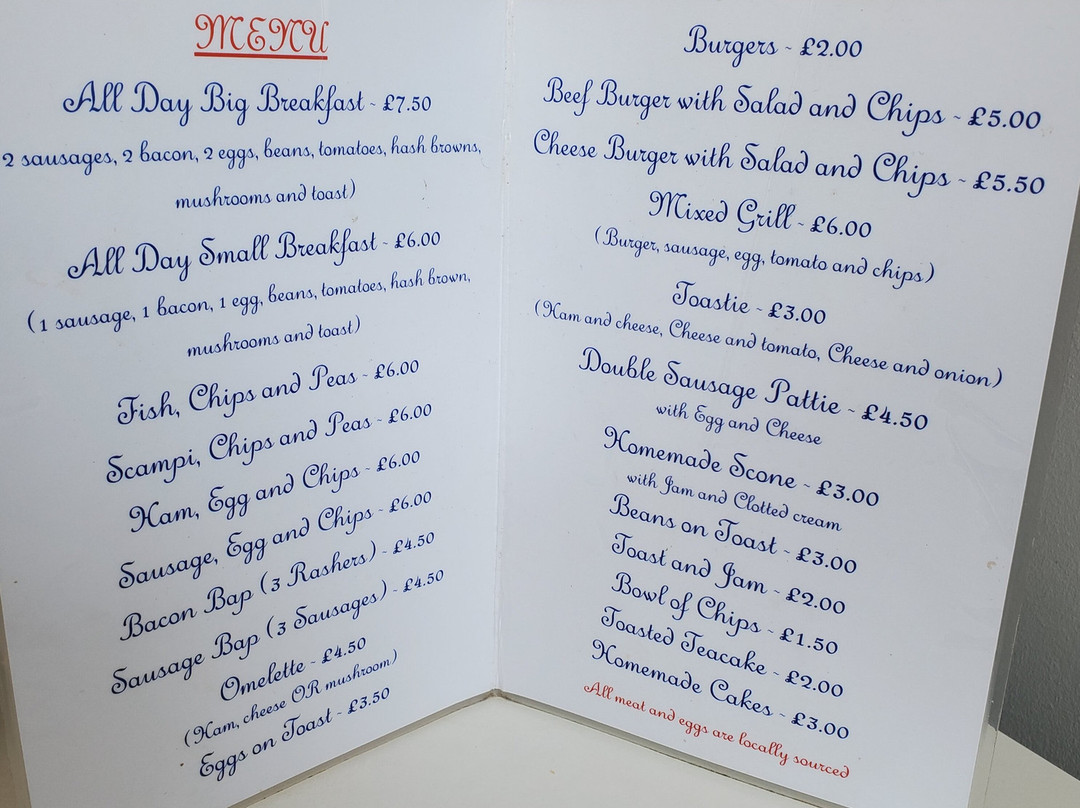 MENU
All Day Big Breakfast - £7.50
2 sausages, 2 bacon, 2 eggs, beans, tomatoes, hash browns,
mushrooms and toast)
All Day Small Breakfast - £6.00
(1 sausage, 1 bacon, 1 egg, beans, tomatoes, hash brown,
mushrooms and toast)
Fish, Chips and Peas - £6.00
Scampi, Chips and Peas - £6.00
Ham, Egg and Chips - £6.00
Sausage, Egg and Chips - £6.00
Bacon Bap (3 Rashers) - £4.50
Sausage Bap (3 Sausages) - £4.50
Omelette - £4.50
(Ham, cheese OR mushroom)
Eggs on Toast - £3.50
Burgers - £2.00
Beef Burger with Salad and Chips - £5.00
Cheese Burger with Salad and Chips - £5.50
Mixed Grill - £6.00
(Burger, sausage, egg, tomato and chips)
Toastie - £3.00
(Ham and cheese, Cheese and tomato, Cheese and onion)
Double Sausage Pattie - £4.50
with Egg and Cheese
Homemade Scone - £3.00
with Jam and Clotted cream
Beans on Toast - £3.00
Toast and Jam - £2.00
Bowl of Chips - £1.50
Toasted Teacake - £2.00
Homemade Cakes - £3.00
All meat and eggs are locally sourced